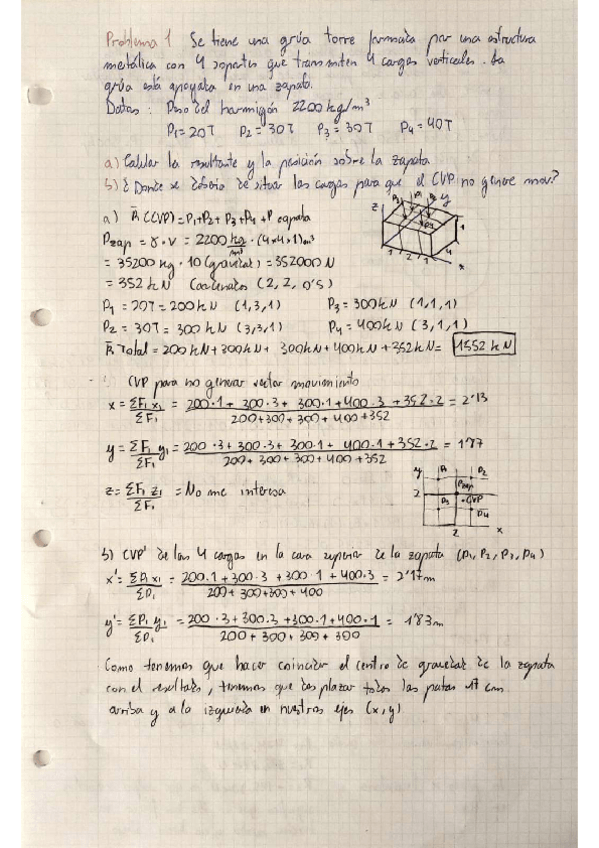 Problema 1 Se tiene una grúa torre formada por una estructura
metálica con 4 soportes que transmiten 4 cargas verticales. La
grúa está apoyada en una zapata.
Datos: Peso del hormigón 2200 kg/m³
P₁=20T P₂=30T P₃=30T P₄=40T
a) Calcular la resultante y la posición sobre la zapata
b) ¿Donde se debería de situar las cargas para que el CVP no genere mov.?
a) R̄ (CVP)=P₁+P₂+P₃+P₄+P zapata
Pzap = γ·V = 2200 kg/m³ · (4x4x1)m³
= 35200 kg · 10 (gravedad) = 352000 N
= 352 kN Coordenadas (2, 2, 0'5)
P₁ = 20T = 200kN (1,3,1) P₃=300kN (1,1,1)
P₂ = 30T = 300 kN (3,3,1) P₄=400kN (3,1,1)
R̄ Total = 200kN+300kN+ 300kN+400kN+352kN= 1552 kN
z y
P₃ P₁ P₂
P4
1 2 1 4 1
x
CVP para no generar vector movimiento
x = ΣFᵢ xᵢ / ΣFᵢ = 200·1+ 300·3+ 300·1+400·3+352·2 / 200+300+300+400+352 = 2'13
y = ΣFᵢ yᵢ / ΣFᵢ = 200·3+300·3+ 300·1+ 400·1+352·2 / 200+300+300+400+352 = 1'87
z= ΣFᵢ zᵢ / ΣFᵢ = No me interesa
y P₁ P₂
Pzap
2
P₃ CVP P4
2 x
b) CVP' de las 4 cargas en la cara superior de la zapata (P₁, P₂, P₃, P₄)
x'= ΣPᵢ xᵢ / ΣPᵢ = 200·1+300·3+300·1+400·3 / 200+300+300+400 = 2'17m
y'= ΣPᵢ yᵢ / ΣPᵢ = 200·3+300·3+300·1+400·1 / 200+300+300+300 = 1'83m
Como tenemos que hacer coincidir el centro de gravedad de la zapata
con el resultado, tenemos que desplazar todas las patas 17 cm
arriba y a la izquierda en nuestros ejes (x,y)